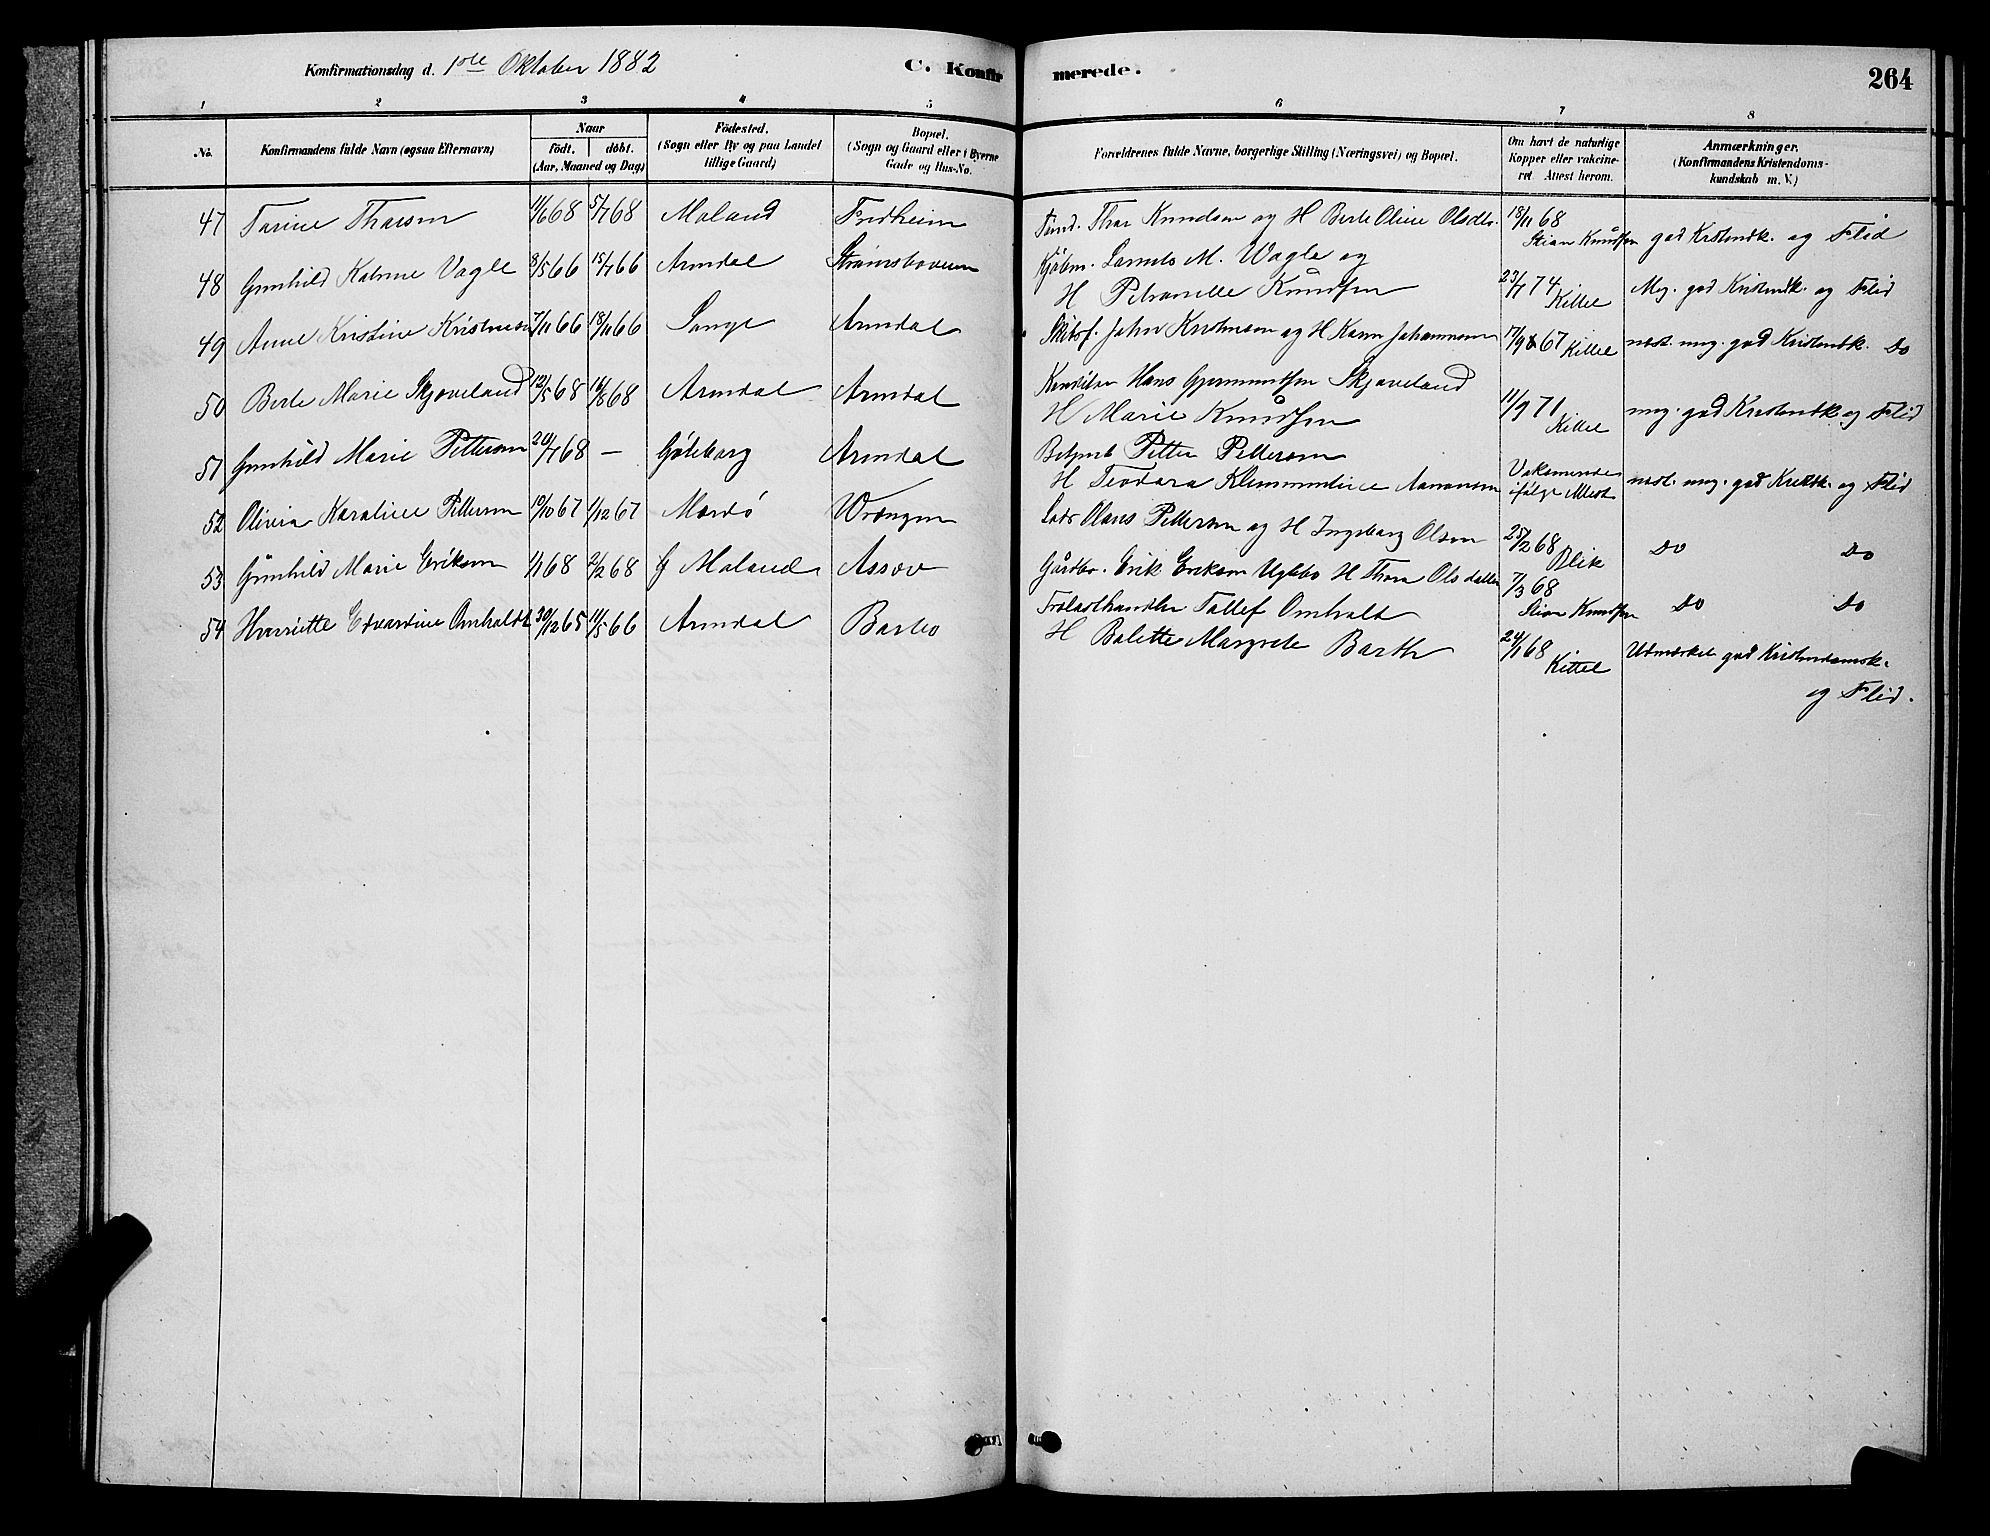 Konfirmationsdag d. 1ste Oktober 1882 C. Konfirmerede. 264
1 2 3 4 5 6 7 8
No. Konfirmandens fulde Navn (ogsaa Efternavn) Naar født. døbt. (Aar, Maaned og Dag) Fødested. (Sogn eller By og paa Landet tillige Gaard) Bopæl. (Sogn og Gaard eller i Byerne Gade og Hus-No. Forældrenes fulde Navne, borgerlige Stilling (Næringsvei) og Bopæl. Om havt de naturlige Kopper eller vakcineret Attest herom. Anmærkninger. (Konfirmandens Kristendomskundskab m. V.)
47 Tarine Tharsen 11/6 68 5/7 68 Moland Fredheim Thor Knudsen og H Berte Oline Olsdtr. 18/11 68 Stian Knudsen god Kristendk. og Flid
48 Gunhild Katrine Vagle 8/5 66 15/7 66 Arendal Kjøbm. M. Vagle og
H Petronelle Knudsen 23/7 74 Kittel Meg. god Kristendk. og Flid
49 Anne Kristine Kristensen 7/11 66 18/11 66 Arendal John Kristensen og H Karen Johannesen 17/9 67 Kittel næst. meg. god Kristendk. Do
50 Berte Marie Skjæveland 12/5 68 16/8 68 Arendal Arendal Hans Gjermundsen Skjæveland
H Marie Knudsen 11/9 71 Kittel meg. god Kristendk og Flid
51 Gunhild Marie Pettersen 20/7 68 — Gøteborg Arendal Petter Pettersen
H Teodora Klemmentine Aanonsen Vaksineret ifølge Attest næst. meg. god Kristdk. og Flid
52 Olivia Karoline Pettersen 10/10 67 1/12 67 Mærdø Wrængen Lods Olaus Pettersen og H Ingeborg Olsen 25/2 68 Blik Do Do
53 Gunhild Marie Eriksen 1/1 68 2/2 68 Ø Moland Assæv Gårdbr. Erik Eriksen H Thora Olsdatter 7/3 68 Stian Knudsen Do Do
54 Harriette Edvardine Omholdt 30/12 65 11/5 66 Arendal Barbo Trælasthandler Tallef Omholt
H Bolette Margrete Barth 24/1 68 Kittel Udmærket god Kristendomsk.
og Flid.